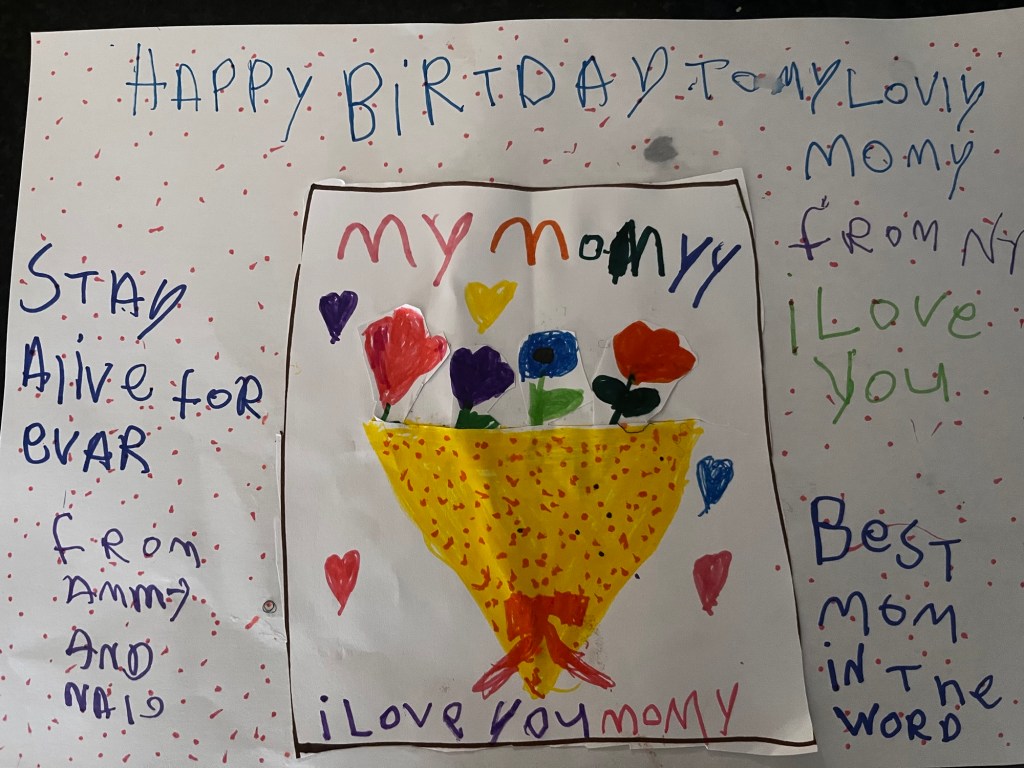 HAPPY BiRTDAY To MY LOVIY
MOMY
fROM NY
STAY
Alive foR
evAR
fROM
AND
MY MOMYY
i Love YOU MOMY
i Love
You
BesT
MOM
iN The
WORD